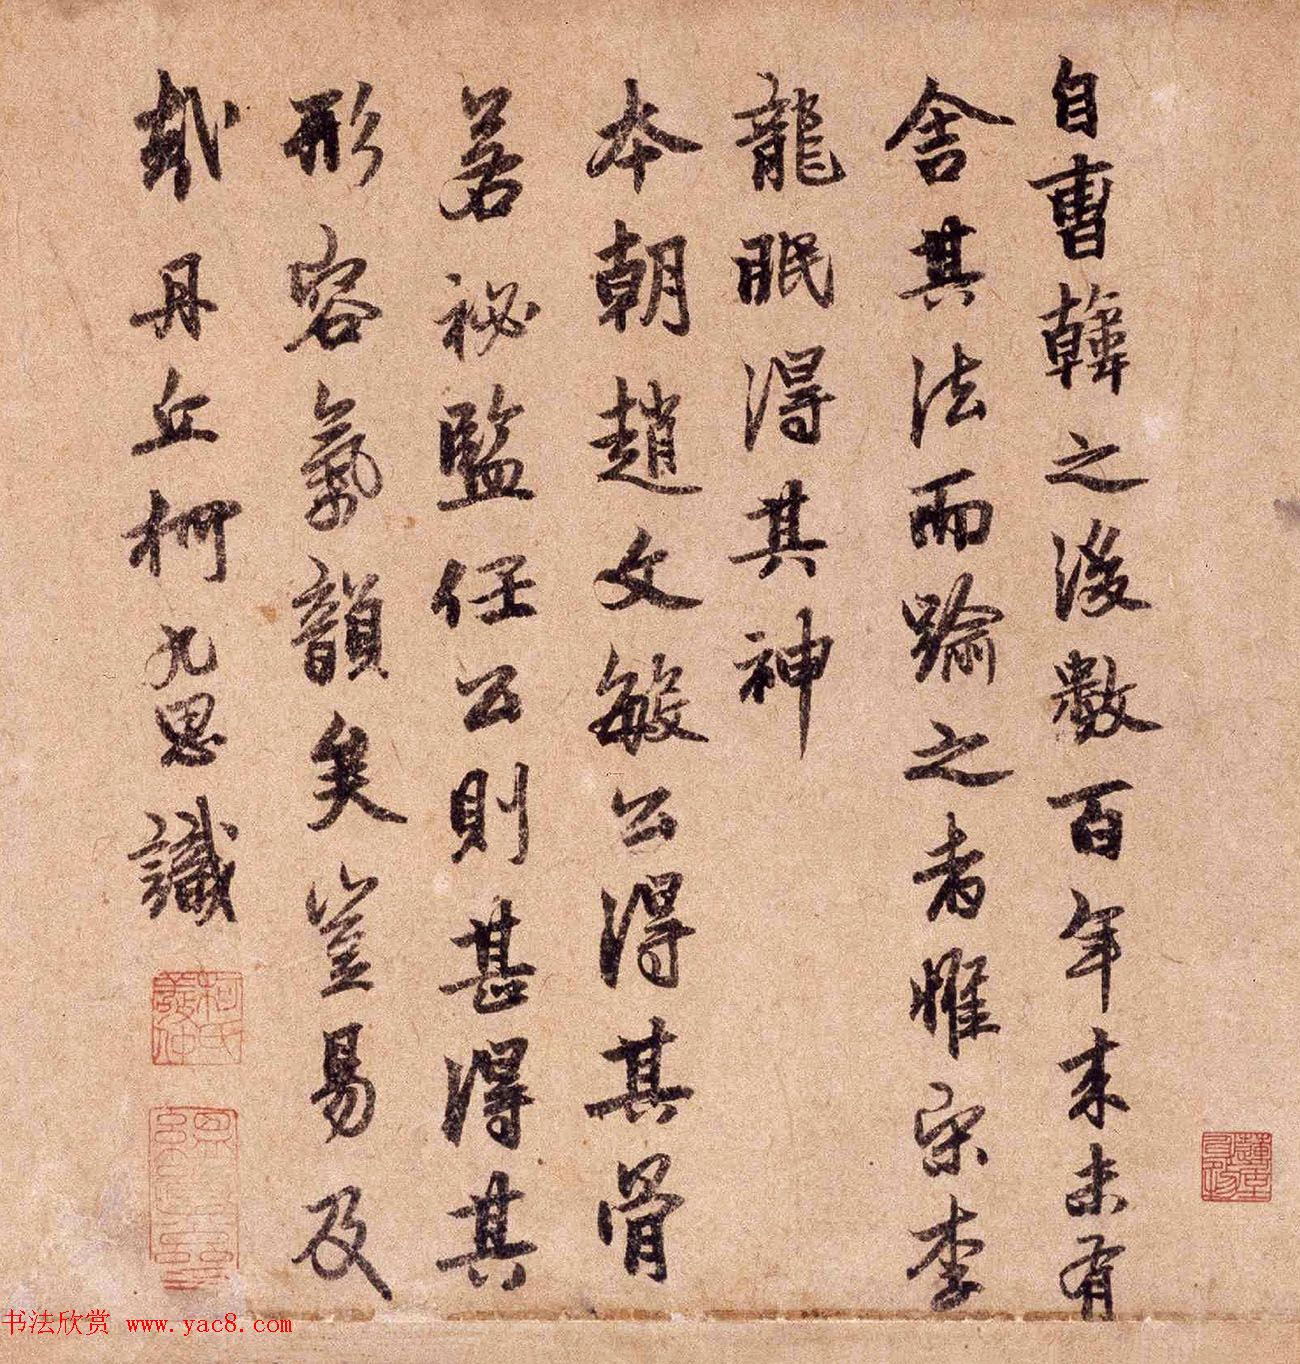 自曹韓之後數百年来未有
舍其法而踰之者惟宋李
龍眠得其神
本朝趙文敏公得其骨
若祕監任公則甚得其
形容氣韻矣豈易及
哉丹丘柯九思識
柯氏敬仲
书法欣赏 www.yac8.com